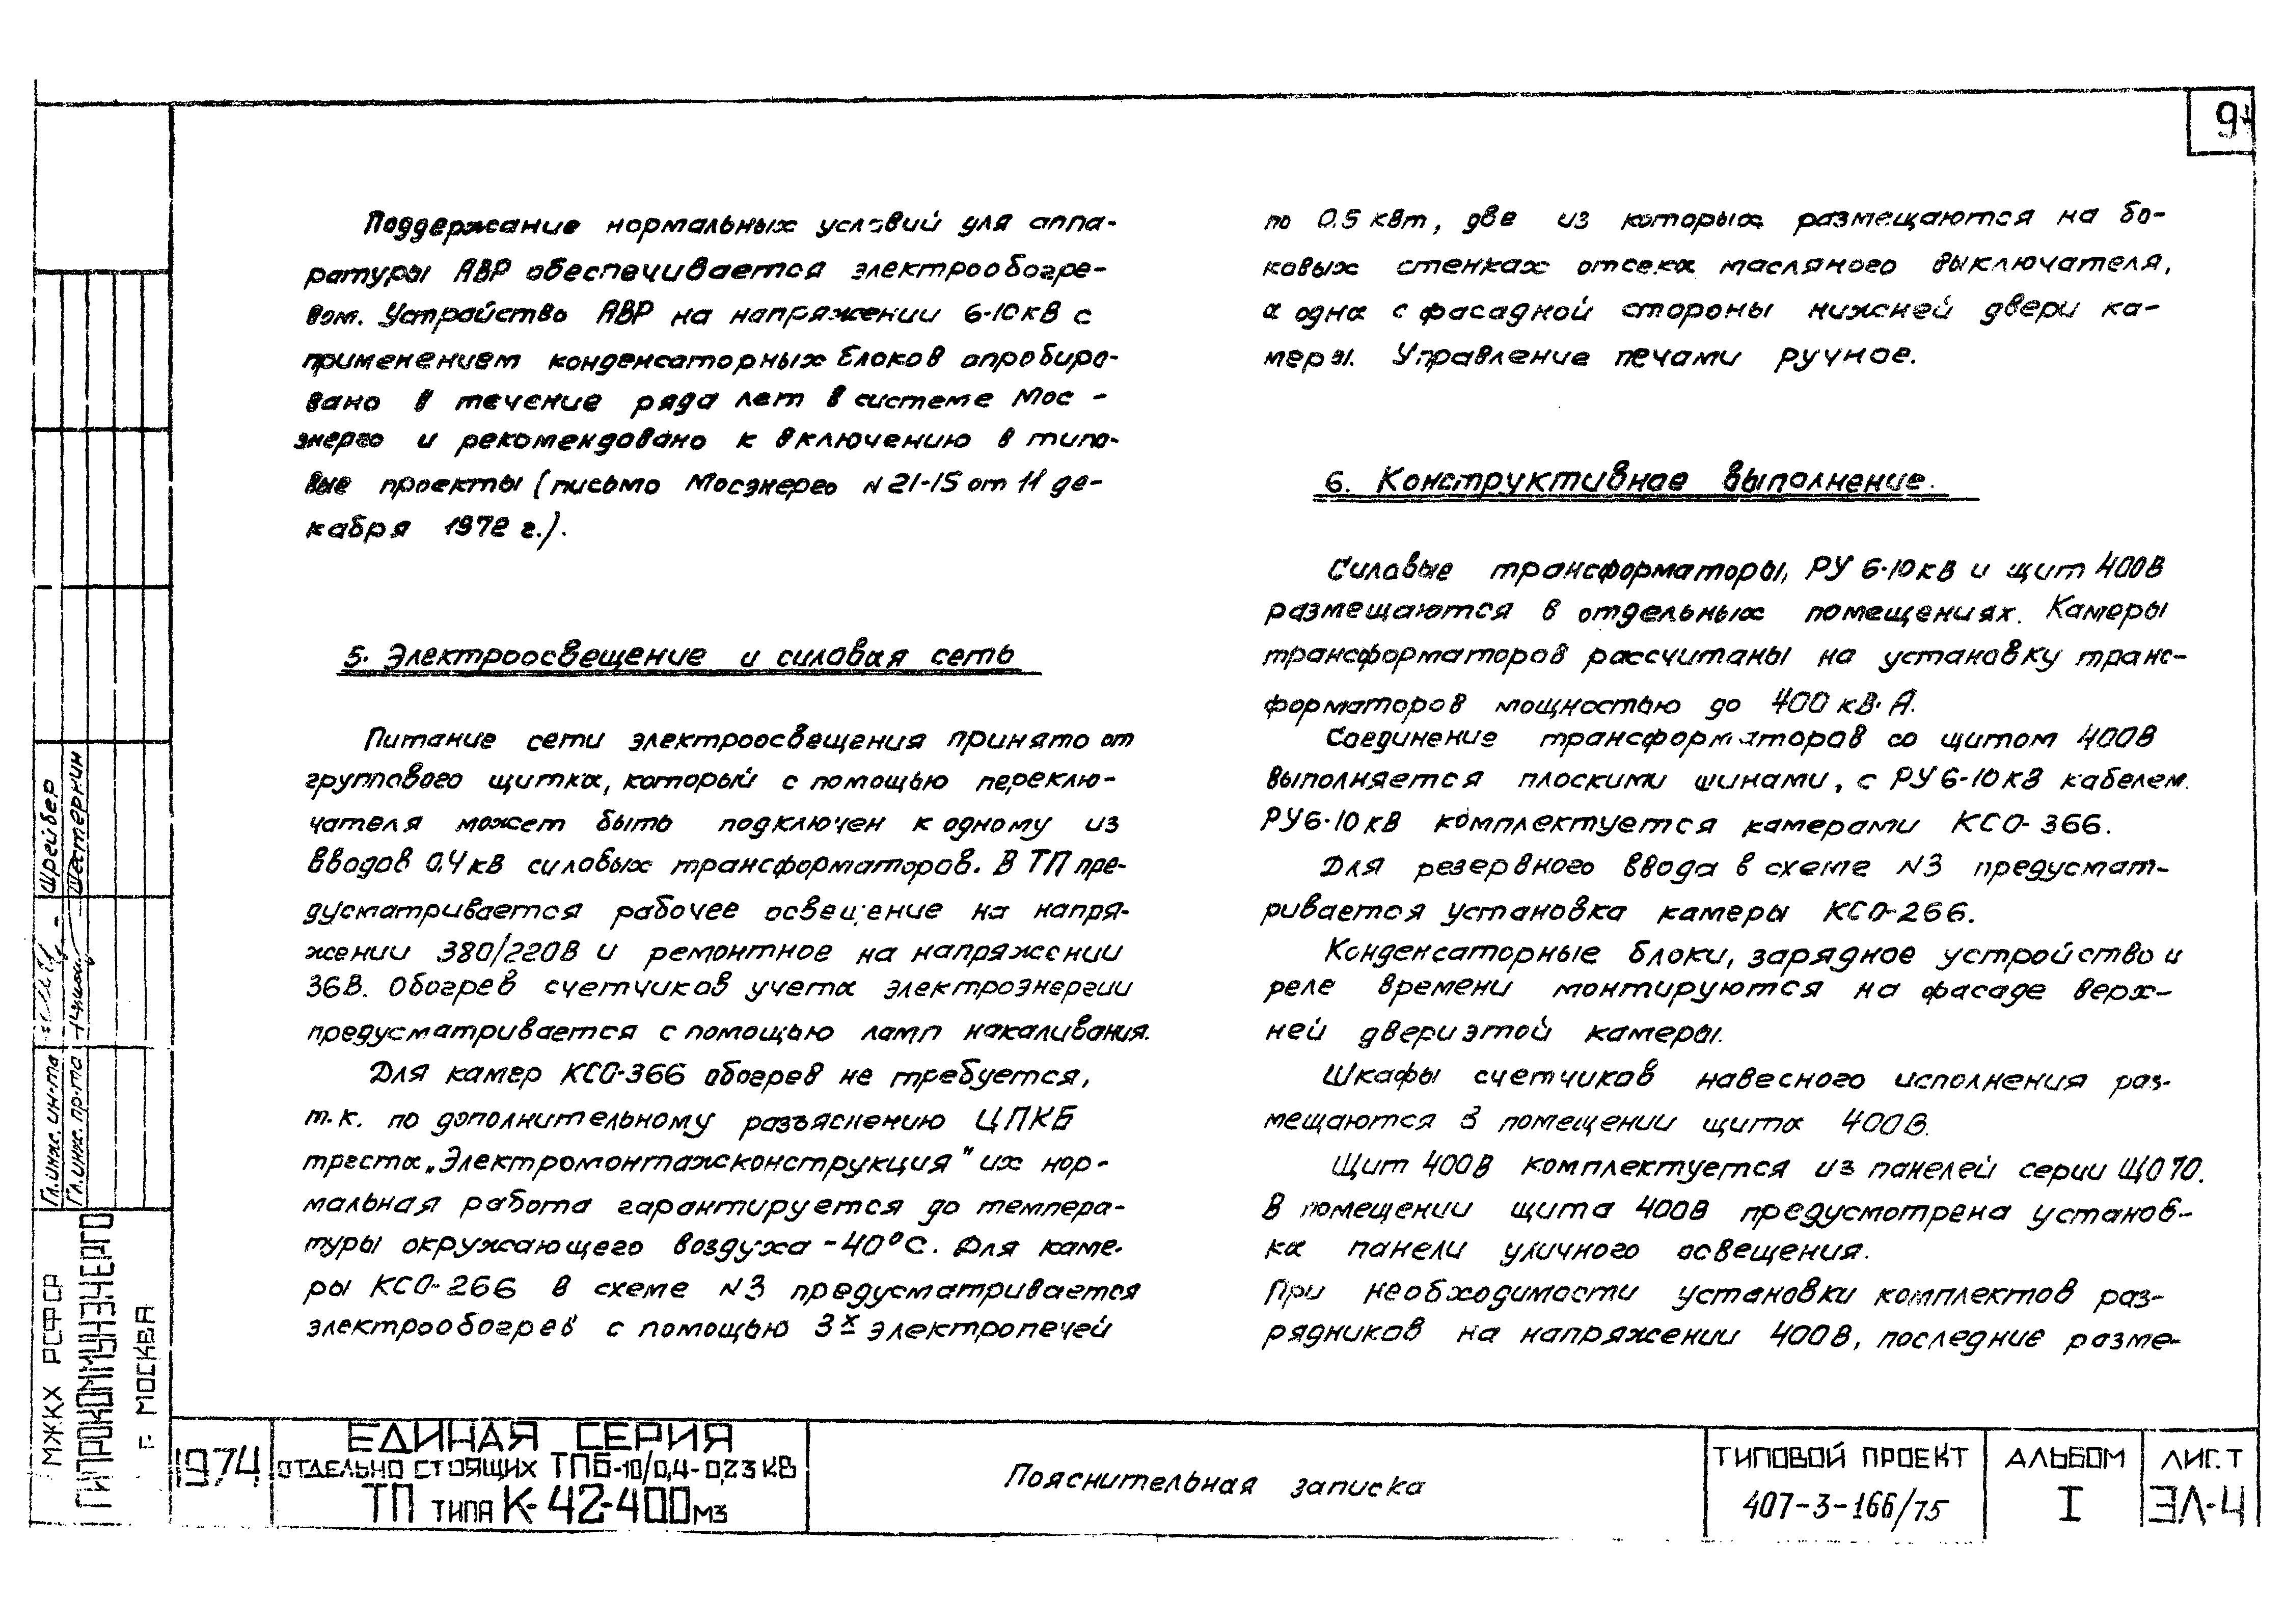 9
Поддержание нормальных условий для аппа-
ратуры АВР обеспечивается электрообогре-
вом. Устройство АВР на напряжении 6-10кВ с
применением конденсаторных блоков опробиро-
вано в течение ряда лет в системе Мос-
энерго и рекомендовано к включению в типо-
вые проекты (письмо Мосэнерго N 21-15 от 11 де-
кабря 1972 г.).
5. Электроосвещение и силовая сеть
Питание сети электроосвещения принято от
группового щитка, который с помощью переклю-
чателя может быть подключен к одному из
вводов 0,4кВ силовых трансформаторов. В ТП пре-
дусматривается рабочее освещение на напря-
жении 380/220В и ремонтное на напряжении
36В. Обогрев счетчиков учета электроэнергии
предусматривается с помощью ламп накаливания.
Для камер КСО-366 обогрев не требуется,
т.к. по дополнительному разъяснению ЦПКБ
треста „Электромонтажконструкция" их нор-
мальная работа гарантируется до темпера-
туры окружающего воздуха -40°С. Для каме-
ры КСО-266 в схеме N3 предусматривается
электрообогрев с помощью 3х электропечей
по 0.5 кВт, две из которых размещаются на бо-
ковых стенках отсека масляного выключателя,
а одна с фасадной стороны нижней двери ка-
меры. Управление печами ручное.
6. Конструктивное выполнение.
Силовые трансформаторы, РУ 6-10кВ и щит 400В
размещаются в отдельных помещениях. Камеры
трансформаторов рассчитаны на установку транс-
форматоров мощностью до 400 кВ·А.
Соединение трансформаторов со щитом 400В
выполняется плоскими шинами, с РУ 6-10кВ кабелем.
РУ6-10кВ комплектуется камерами КСО-366.
Для резервного ввода в схеме N3 предусмат-
ривается установка камеры КСО-266.
Конденсаторные блоки, зарядное устройство и
реле времени монтируются на фасаде верх-
ней двери этой камеры.
Шкафы счетчиков навесного исполнения раз-
мещаются в помещении щита 400В.
Щит 400В комплектуется из панелей серии ЩО70.
В помещении щита 400В предусмотрена установ-
ка панели уличного освещения.
При необходимости установки комплектов раз-
рядников на напряжении 400В, последние разме-
Гл. инж. ин-та Шрейбер
Гл. инж. пр-та Шестеркин
МЖКХ РСФСР
ГИПРОКОММУНЭНЕРГО
г. МОСКВА
1974
ЕДИНАЯ СЕРИЯ
ОТДЕЛЬНО СТОЯЩИХ ТПБ-10/0,4-0,23 КВ
ТП ТИПА К-42-400М3
Пояснительная записка
ТИПОВОЙ ПРОЕКТ
407-3-166/75
АЛЬБОМ
I
ЛИСТ
ЭЛ-4